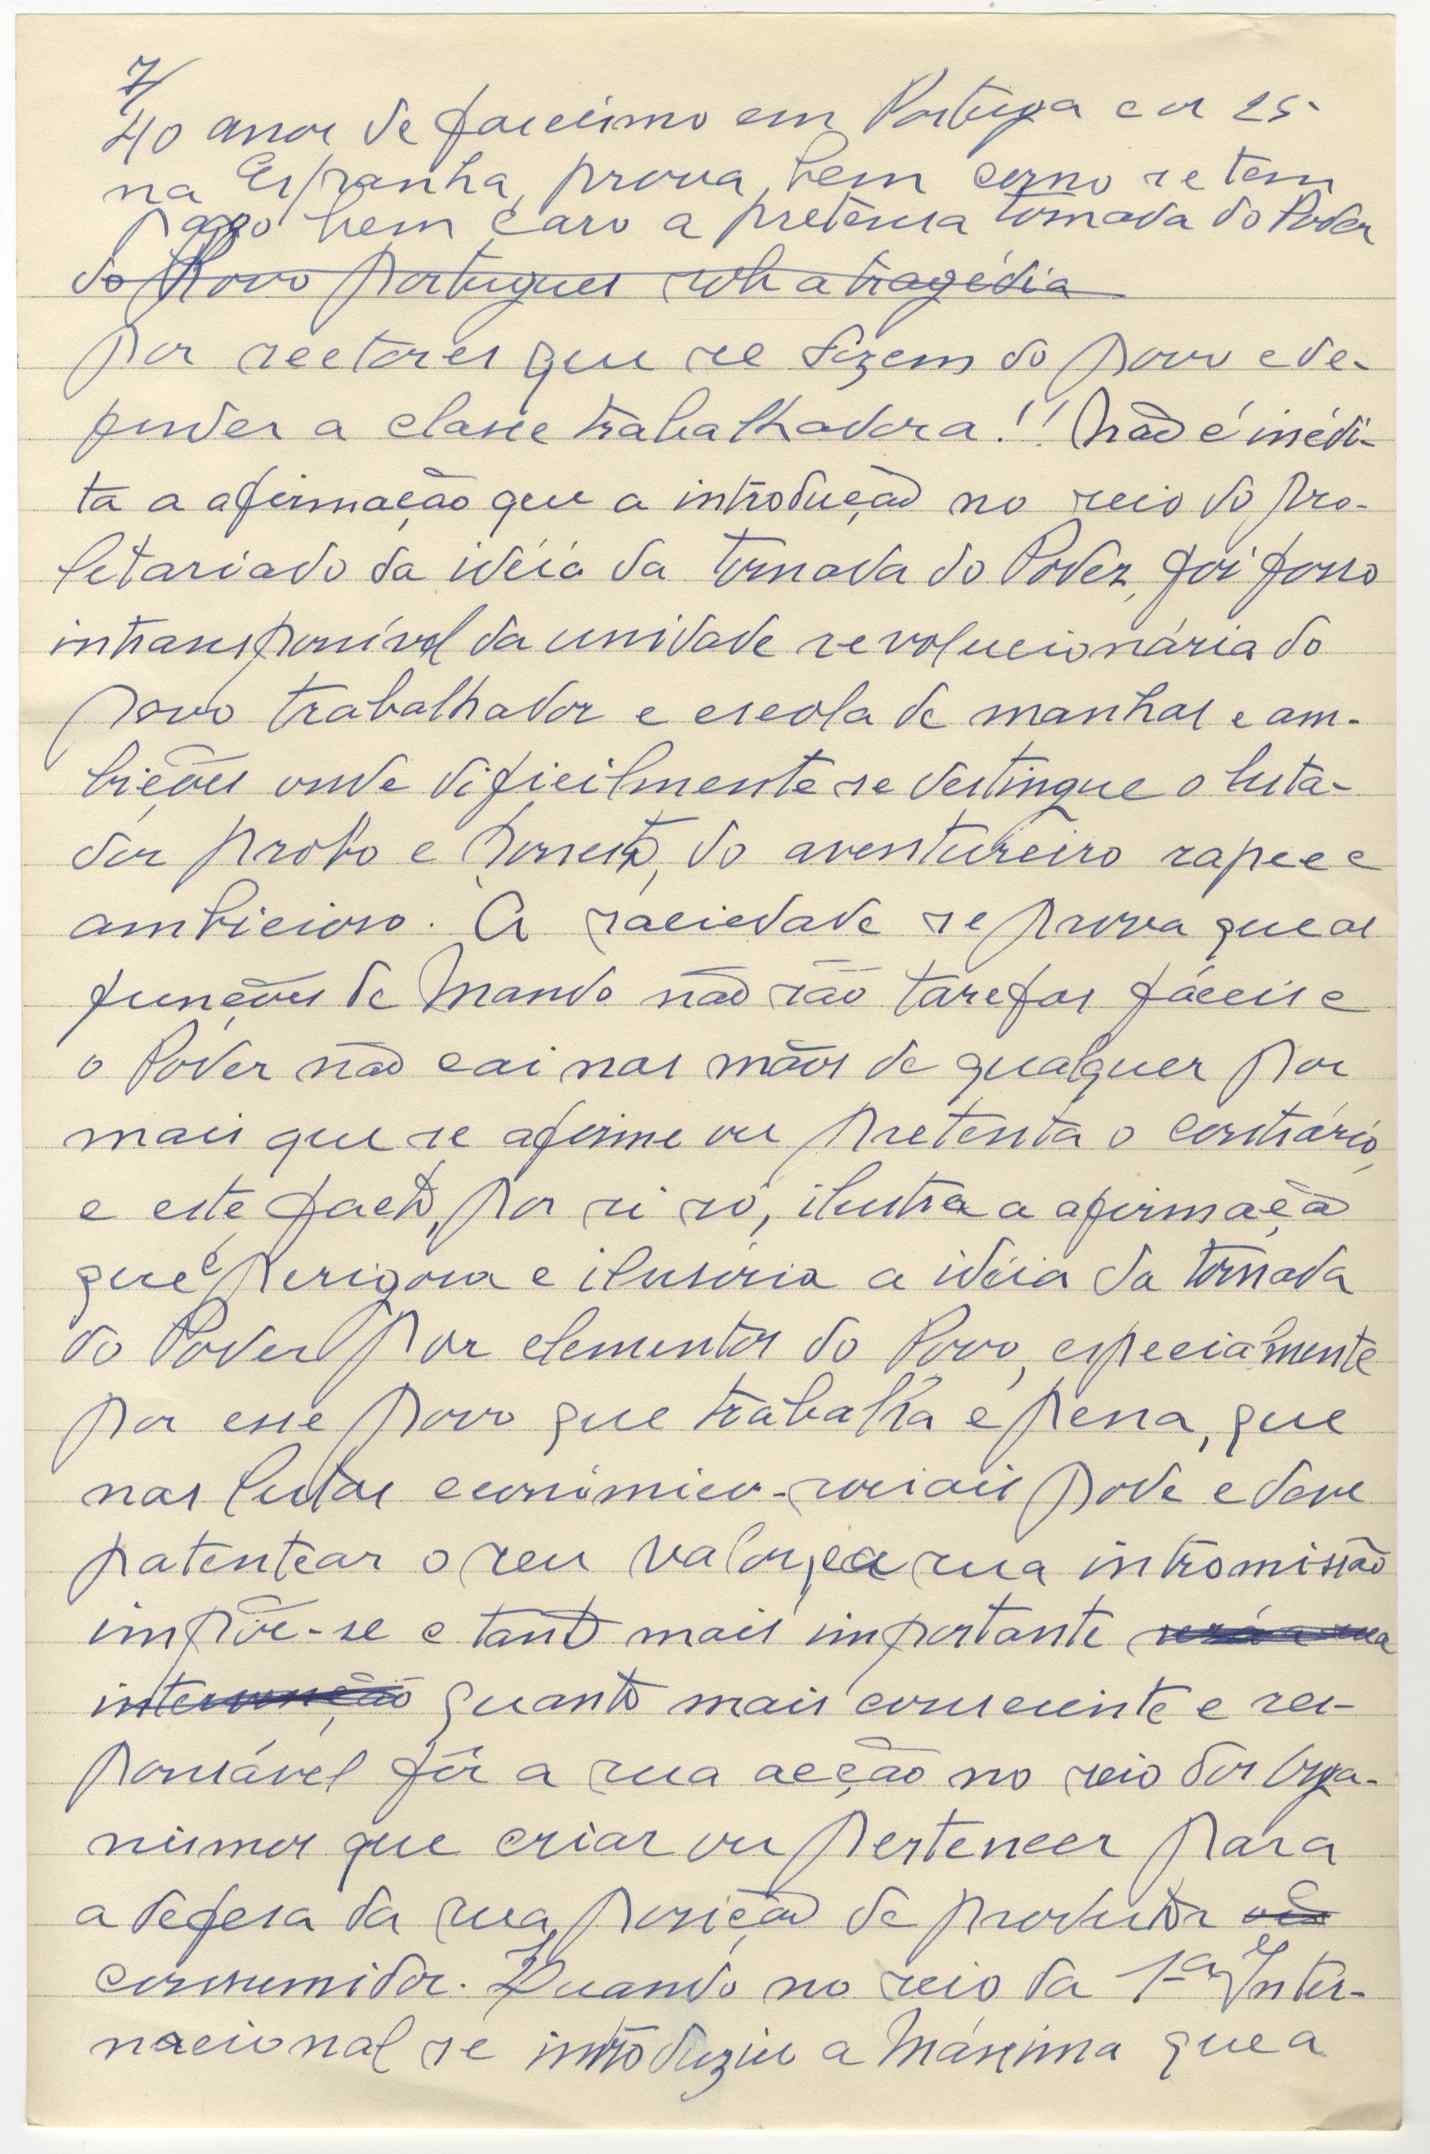 7/
40 anos de fascismo em Portuga e os 25
na Espanha, prova bem como se tem
pago bem caro a pretensa tomada do Poder
do Povo português sob a tragédia
por sectores que se dizem do povo e de-
fender a classe trabalhadora!! Não é inédi-
ta a afirmação que a introdução no seio do pro-
letariado da idéia da tomada do Poder, foi fosso
intransponível da unidade revolucionária do
povo trabalhador e escola de manhas e am-
bições onde dificilmente se destingue o luta-
dor probo e honesto, do aventureiro rapace e
ambicioso. À saciedade se prova que as
funções de Mando não são tarefas fáceis e
o Poder não cai nas mãos de qualquer por
mais que se afirme ou pretenta o contrário,
e este facto, por si só, ilustra a afirmação
que é perigosa e ilusória a idéia da tomada
do Poder por elementos do Povo, especialmente
por esse povo que trabalha e pensa, que
nas lutas económico-sociais pode e deve
patentear o seu valor, e a sua intromissão
impõe-se e tanto mais importante será a sua
intervenção quanto mais consciente e res-
ponsável fôr a sua acção no seio dos Orga-
nismos que criar ou pertencer para
a defesa da sua posição de produtor e
consumidor. Quando no seio da 1ª Inter-
nacional se introduziu a Máxima que a